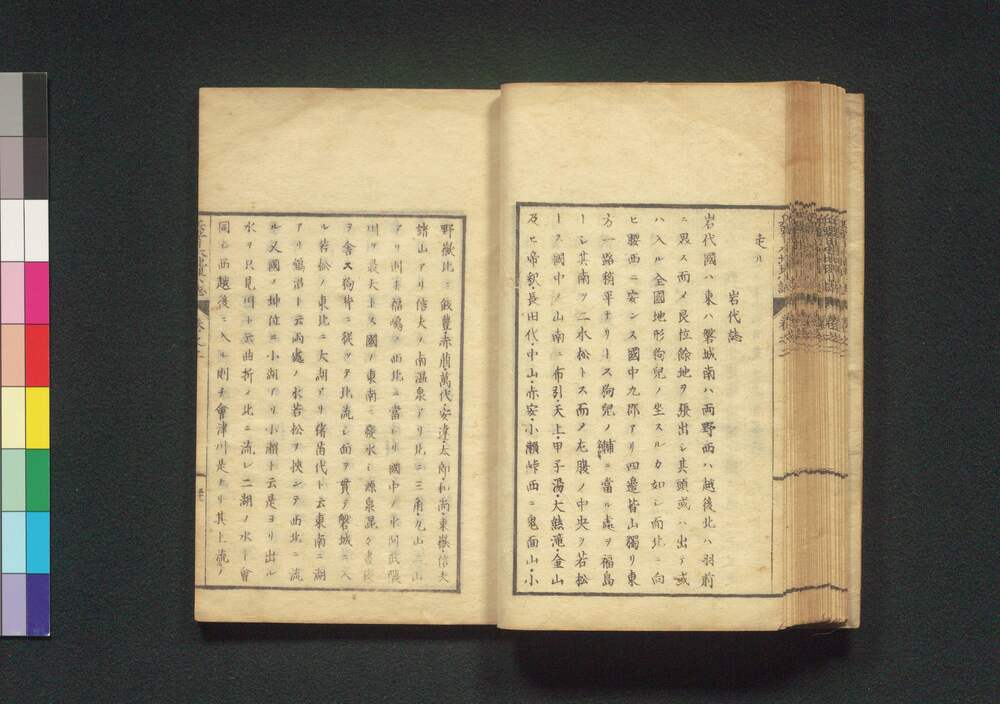 走ル
岩代誌
岩代國ハ東ハ磐城南ハ両野西ハ越後北ハ羽前
ニ界ス而メ艮位餘地ヲ張出シ其頭或ハ出テ或
ハ入ル全國地形狗兒ノ坐スルカ如シ而北ニ向
ヒ腰西ニ安ンス國中九郡アリ四邉皆山獨リ東
方一路稍平ナリトス狗兒ノ輔ニ當ル處ヲ福島
トシ其南ヲ二本松トス而メ左膁ノ中央ヲ若松
トス國中ノ山南ニ布引・天上・甲子湯・大熊滝・金山
及ヒ帝釈・長田代・中山・赤安・小瀬峠西ニ鬼面山・小
野嶽北ニ飯豊・赤前萬代・安達太郎・和尚・東嶽・信夫
諸山アリ信夫ノ南温泉アリ北ニ三角・丸山
アリ福嶋ノ西北ニ當レリ國中ノ水阿武隈
川ヲ最大トス國ノ東南ニ發水シ源泉混々
ヲ舎ス狗背ニ從ツテ北流シ面ヲ貫テ磐城ニ入
ル若松ノ東北ニ大湖アリ猪苗代ト云東南ニ湖
アリ福沼ト云両處ノ水若松ヲ挾ンテ西北ニ流
ル又國ノ坤位ニ小湖アリ小瀬ト云是ヨリ出ル
水ヲ只見川ト云曲折ノ北ニ流レ二湖ノ水ト會
同シ西越後ニ入ル則チ會津川是ナリ其上流ノ